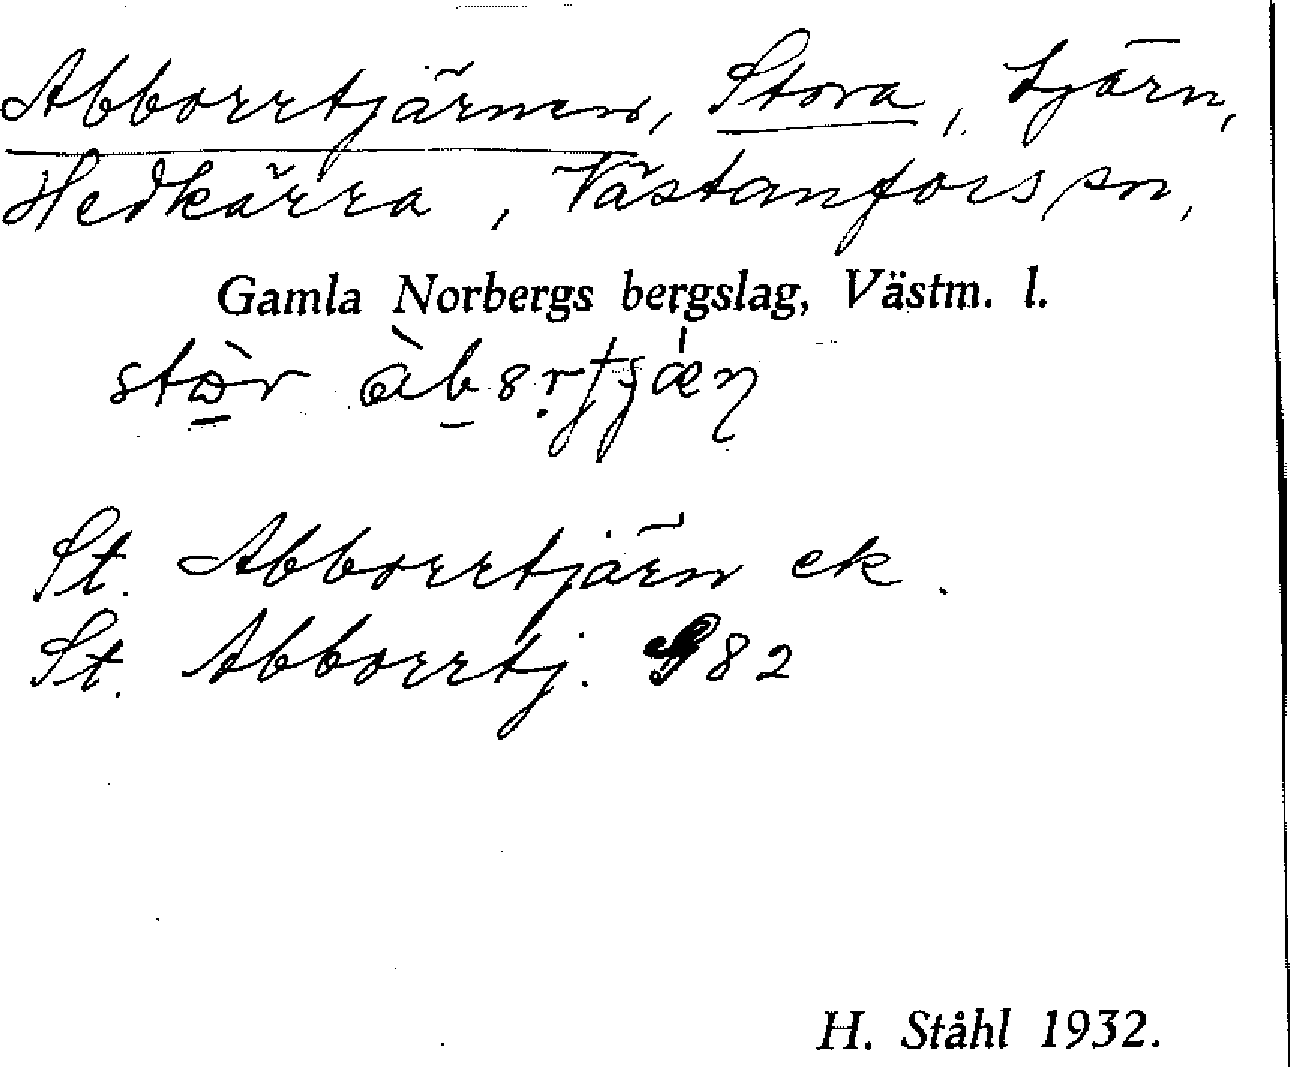 Abborrtjärnen, Stora, tjärn,
Hedkärra, Västanfors sn,
Gamla Norbergs bergslag, Västm. l.
St. Abborrtjärn ek.
St. Abborrtj. G 82
H. Ståhl 1932.